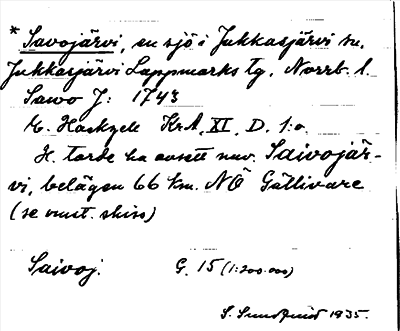 * Savojärvi, en sjö i Jukkasjärvi sn,
Jukkasjärvi Lappmarks tg, Norrb. l.
Sawo J: 1743
E. Hackzell KrA, XI, D. 1:a
H. torde ha avsett nuv. Saivojär-
vi, belägen 66 km. NÖ Gällivare
(se omst. skiss)
Saivoj. G. 15 (1:200.000)
S. Sundquist 1935.